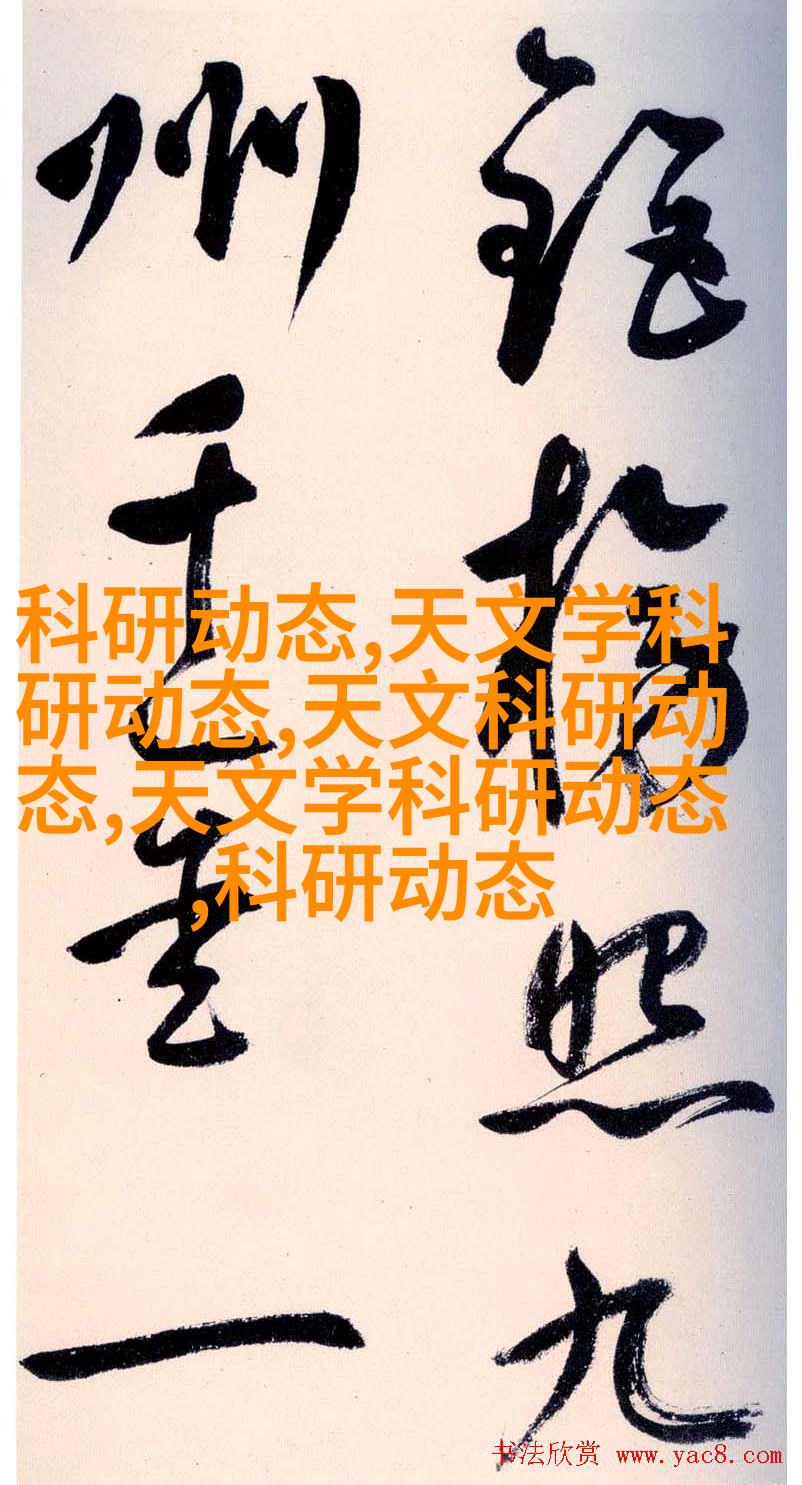 照九
州千一
科研动态,天文学科
研动态,天文科研动
态,天文学科研动态
,科研动态
书法欣赏 www.yac8.com